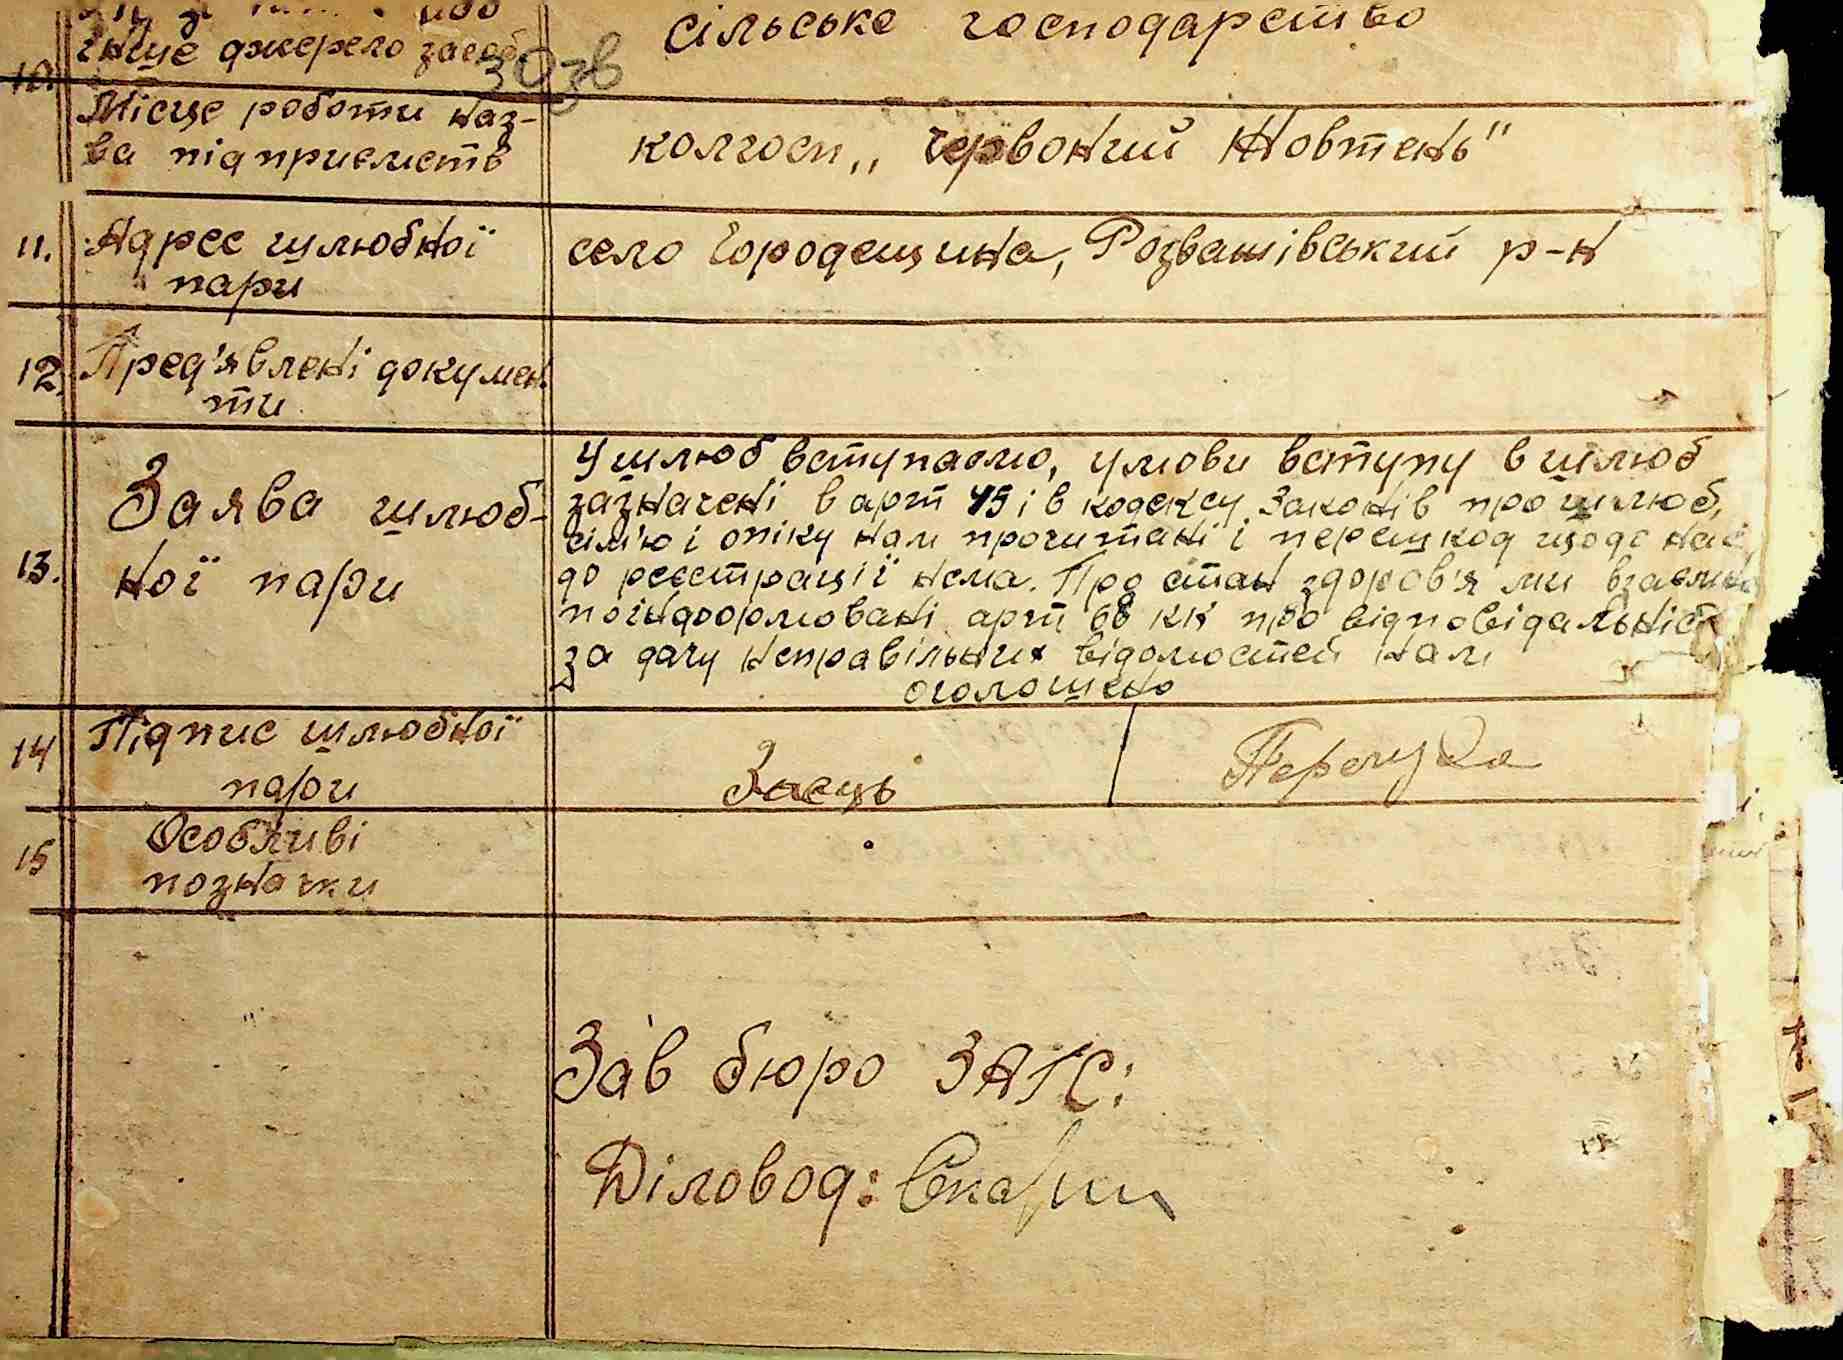 гнуще джерело засоб
сільське господарство
10.
Місце роботи наз-
ва підприємств
колгосп „ Червоний Жовтень"
11.
Адрес шлюбної
пари
село Городещина, Розважівський р-н
12.
Пред'явлені докумен
ти
13.
Заява шлюб-
ної пари
У шлюб вступаємо, умови вступу в шлюб
зазначені в арт 45 і в кодексу Законів про шлюб,
сім'ю і опіку нам прочитані і перешкод щодо нас
до реєстрації нема. Про стан здоров'я ми взаємно
поінформовані арт 68 КК про відповідальніс
за дачу неправільних відомостей нам
оголошено
14
Підпис шлюбної
пари
Заєць
15
Особливі
позначки
Зав бюро ЗАГС:
Діловод: